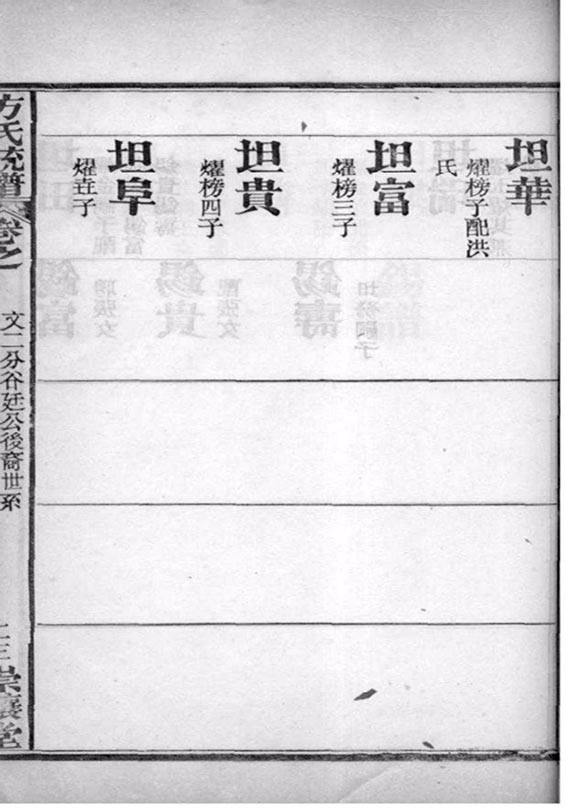 坦華
燿榜子配洪
氏
坦富
燿榜三子
坦貴
燿榜四子
坦阜
燿壵子
方氏統譜
卷之一
文二分谷廷公後裔世系
二三
崇讓堂